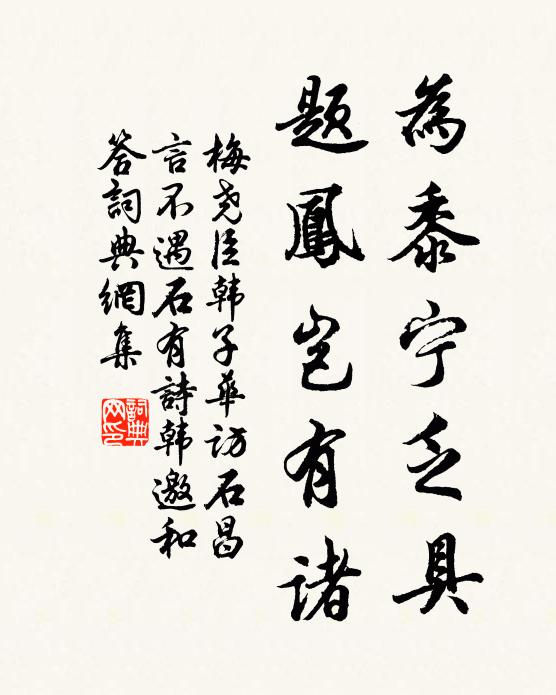 為黍宁乏具
題鳳岂有諸
梅尧臣韩子華访石昌
言不遇石有詩韩邀和
答詞典網集
詞典
网印